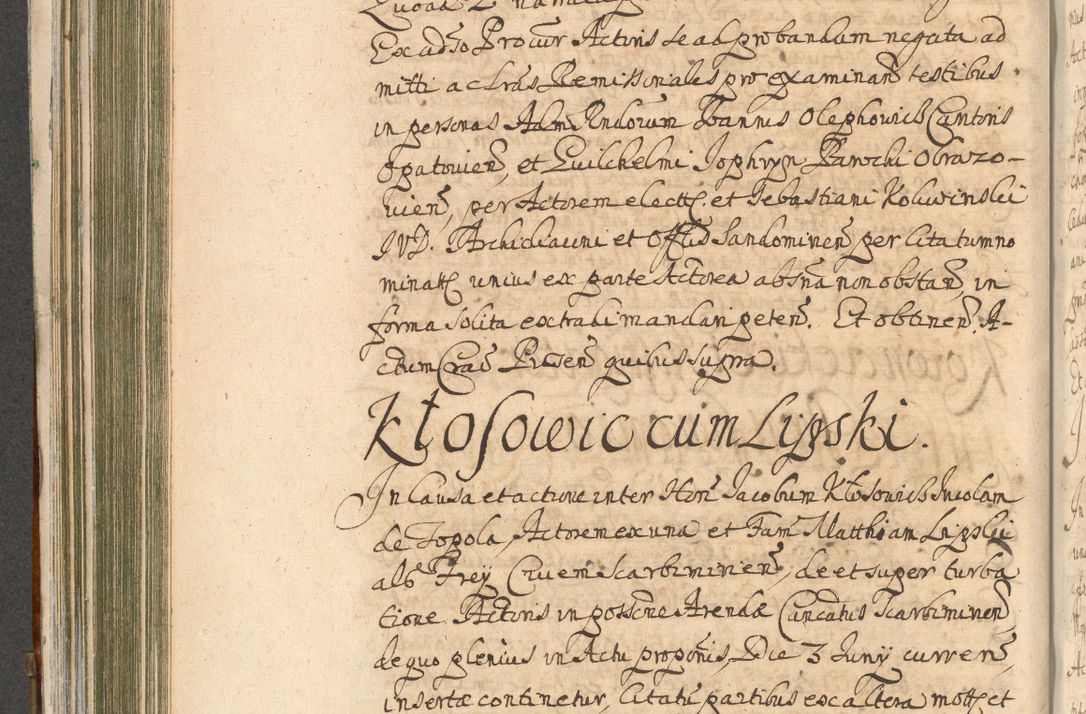 Ex adso Procur Actoris se ad probandum negata ad
mitti ac Lras Remissoriales pro examinan testibus
in personas Adm Rndorum Joannis Oleghowicz Cantoris
Opatovien, et Guilhelmi Joghryn Parochi Obrazo-
vien, per Actorem elect et Sebastiani Koliwinski
JVD. Archidiaconi et Offlis Sandomirien per Citatum no
minat unius ex parte Actorea absna non obstan, in
forma solita extradi mandari peten. Et obtinen. A-
ctum Crac Presen quibus supra.
Kłosowic cum Lipski.
In Causa et actione inter Hon Jacobum Kłosowicz Incolam
de Topola Actorem ex una et Fam Matthiam Lipski
als Frey Civem Skarbimirien, de et super turba
tione Actoris in possone Arendæ Cancatus Scarbimirien,
de quo plenius in Actu propōnis, Die 3 Iunij curren,
insertæ continetur, Citatū partibus ex altera mott et